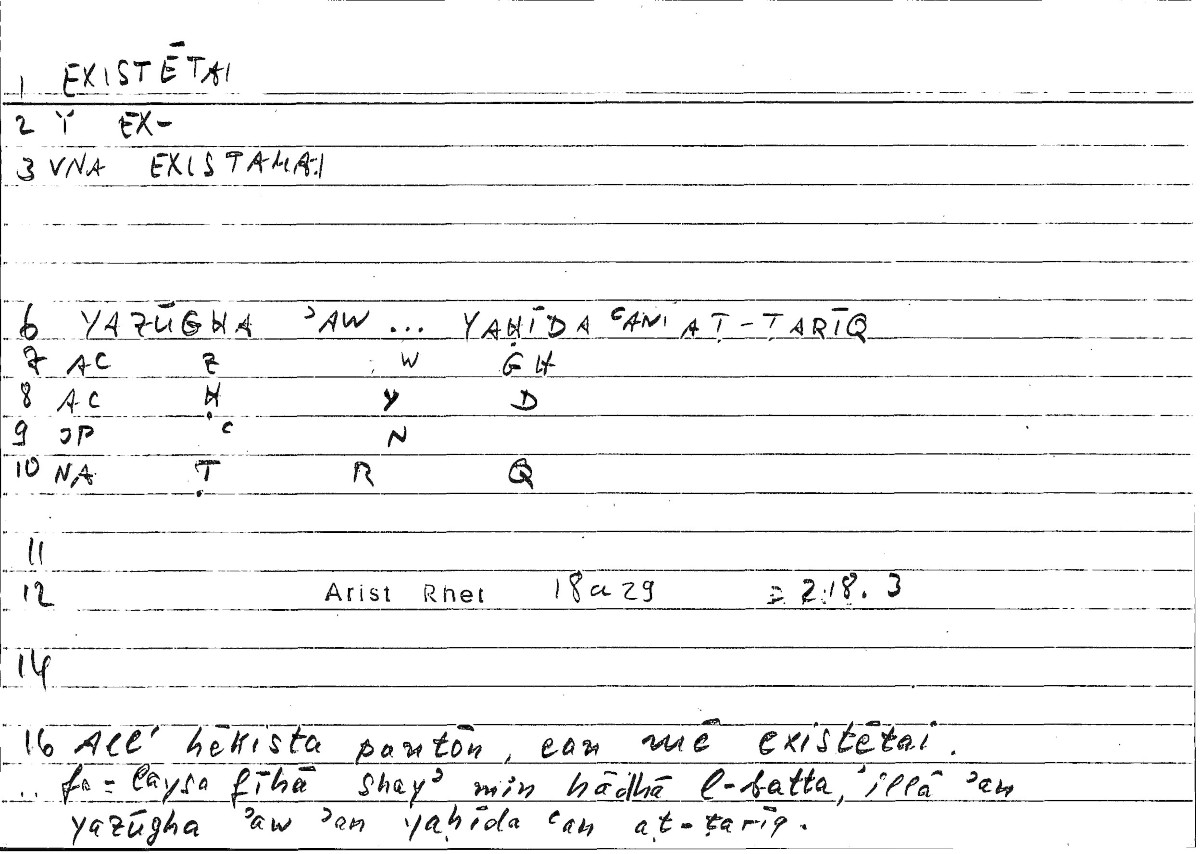 1 EXISTĒTAI
2 Y EX-
3 VNA EXISTAMAI
6 YAZŪGHA ʾAW ... YAḤĪDA ʿANI AṬ-ṬARĪQ
7 AC Z W GH
8 AC Ḥ Y D
9 JP ʿ N
10 NA Ṭ R Q
11
12 Arist Rhet 18a29 = 2.18.3
14
16 All' hēkista pantōn, ean mē existētai.
.. fa-laysa fīhā shayʾ min hādhā l-batta, ʾillā ʾan
yazūgha ʾaw ʾan yaḥīda ʿan aṭ-ṭarīq.